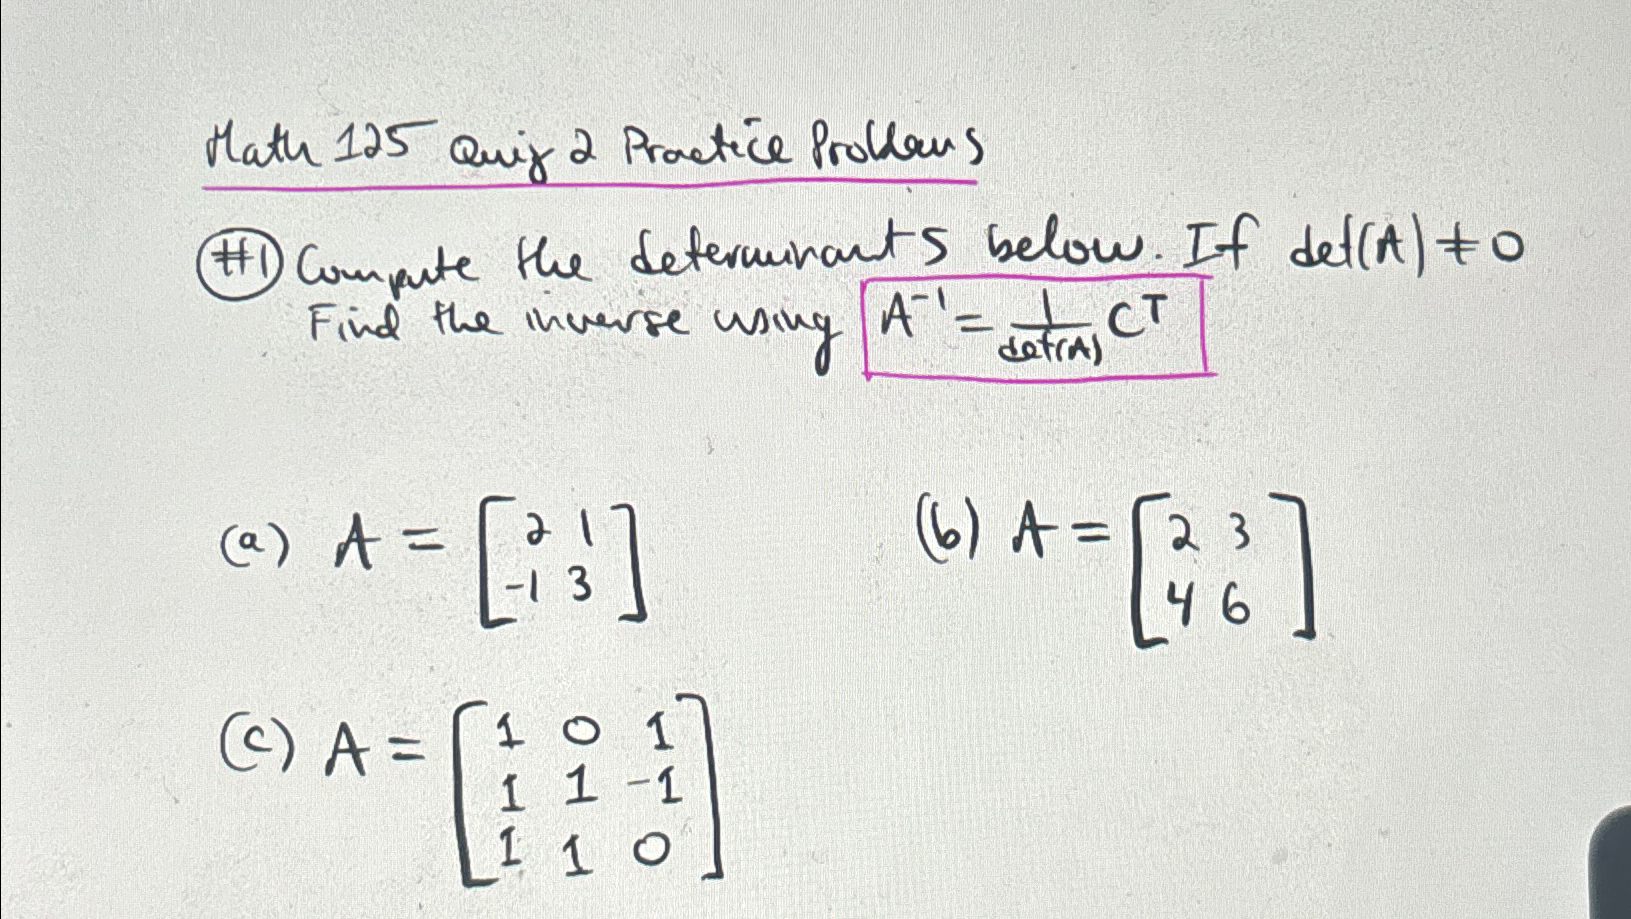 Math 125 Quiz 2 Practice Problems
#1 Compute the determinants below. If det(A) ≠ 0
Find the inverse using A⁻¹ = 1/det(A) Cᵀ
(a) A = [2 1
-1 3]
(b) A = [2 3
4 6]
(c) A = [1 0 1
1 1 -1
1 1 0]